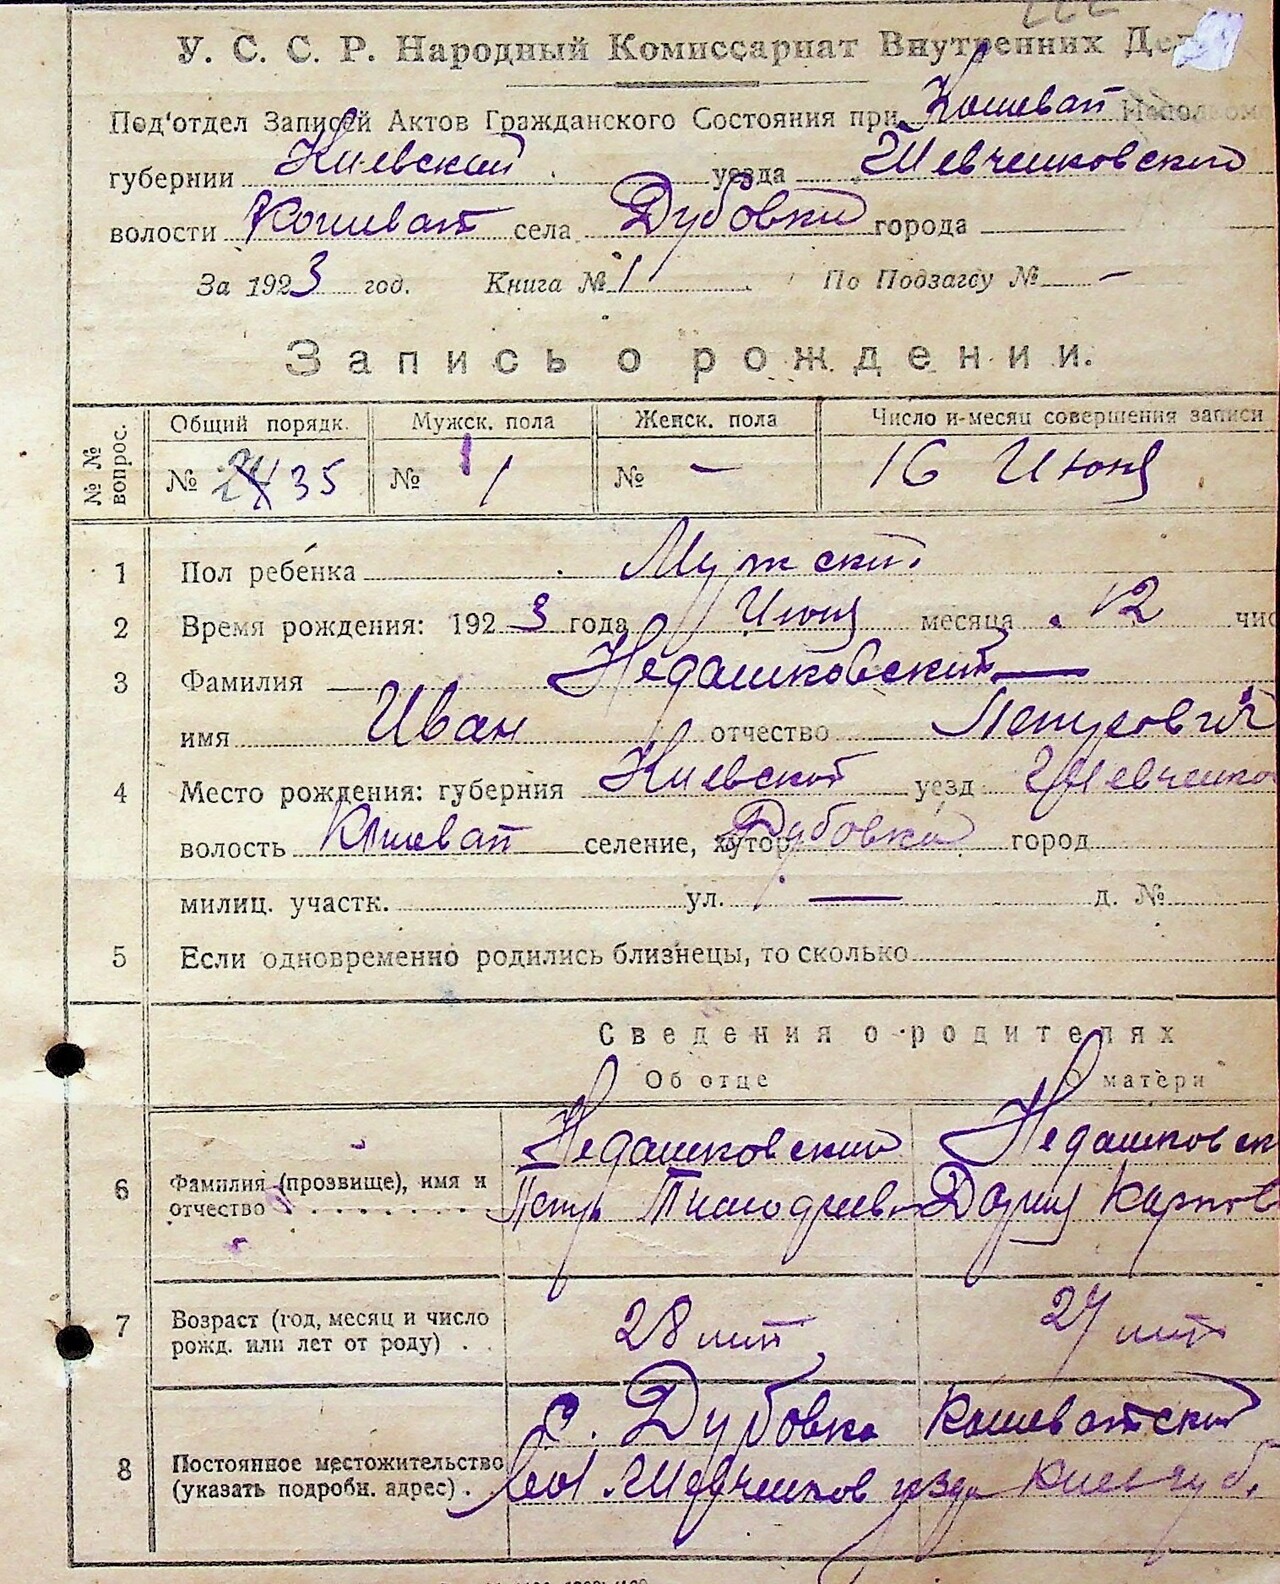 У. С. С. Р. Народный Комиссариат Внутренних Дел
Под'отдел Записей Актов Гражданского Состояния при Кошеват
губернии Киевский уезда Шевченковский
волости Кошеват села Дубовки города
За 1923 год. Книга № 1 По Подзагсу № —
Запись о рождении.
№ № вопрос.
Общий порядк. Мужск. пола Женск. пола Число и месяц совершения записи
№ 35 № 1 № — 16 Июня
1 Пол ребенка Мужский
2 Время рождения: 1923 года Июня месяца 12 чис
3 Фамилия Недашковский —
имя Иван отчество Петрович
4 Место рождения: губерния Киевской уезд Шевченко
волость Кошеват селение, хутор Дубовка город
милиц. участк. ул. — д. №
5 Если одновременно родились близнецы, то сколько
Сведения о родителях
Об отце О матери
6 Фамилия (прозвище), имя и отчество Недашковский Недашковск
Петр Дария Карпов
7 Возраст (год, месяц и число рожд. или лет от роду) 28 лет 27 лет
8 Постоянное местожительство (указать подробн. адрес) с. Дубовка Кошеватский
вол. Шевченков уезда Киев губ.